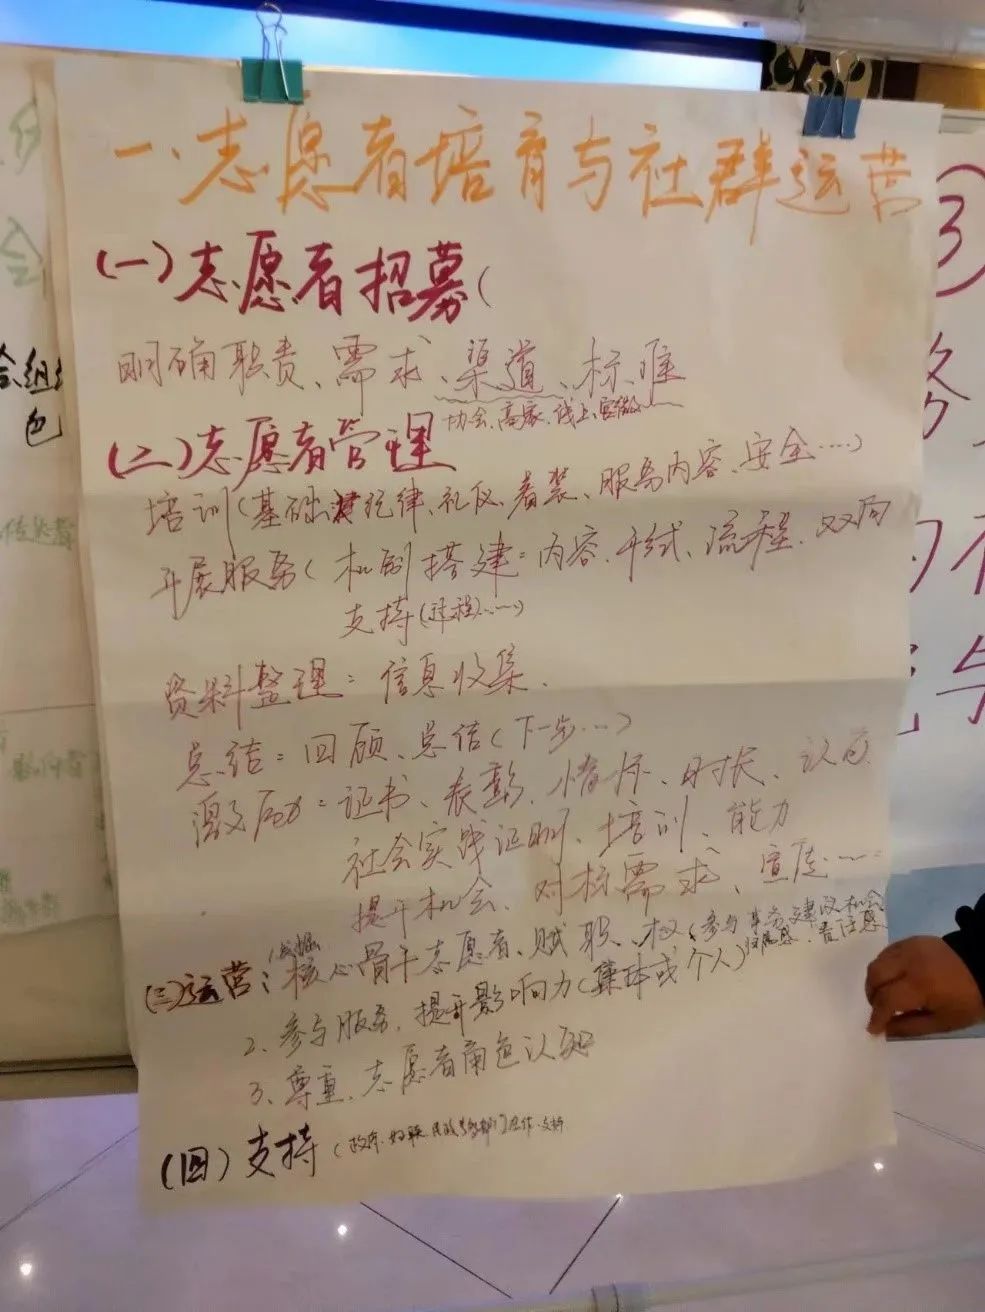 一、志愿者培育与社群运营
(一)志愿者招募(
明确职责、需求、渠道、标准
协会、高家、线上、
(二)志愿者管理
培训(基础 纪律、礼仪、着装、服务内容、安全……)
开展服务(机制搭建:内容、形式、流程、双向
支持(过程)……)
资料整理:信息收集.
总结:回顾、总结(下一步…)
激励:证书、表彰、情怀、时长、认可
社会实践证明、培训、能力
提升机会、对标需求、宣传……
(挖掘)
(三)运营:核心骨干志愿者、赋职、权(参与事务建议机会
归属感、责任感
2、参与服务,提升影响力(集体或个人)
3、尊重、志愿者角色认知
(四)支持(政府、妇联、民政 等部门 合作、支持
③
务
会组织
色